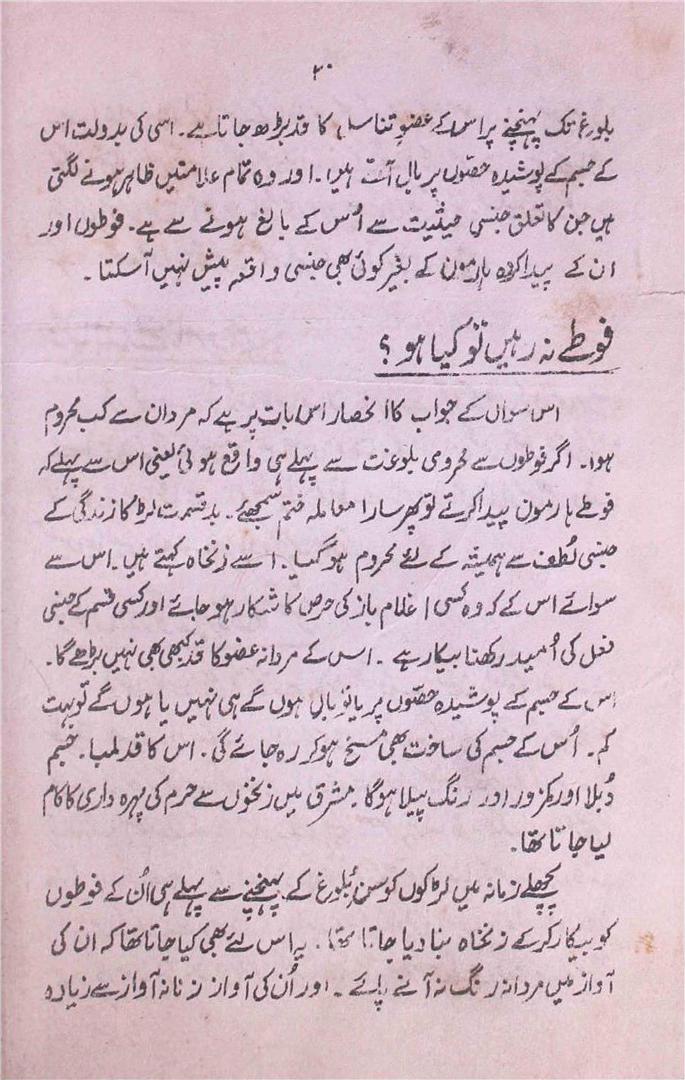 ۳۰
بلوغ تک پہنچنے پر اس کے عضو تناسل کا قد بڑھ جاتا ہے۔ اسی کی بدولت اس
کے جسم کے پوشیدہ حصّوں پر بال آتے ہیں۔ اور وہ تمام علامتیں ظاہر ہونے لگتی
ہیں جن کا تعلق جنسی حیثیت سے اُس کے بالغ ہونے سے ہے۔ فوطوں اور
ان کے پیدا کردہ ہارمون کے بغیر کوئی بھی جنسی واقعہ پیش نہیں آسکتا۔
فوطے نہ رہیں تو کیا ہو؟
اس سوال کے جواب کا انحصار اس بات پر ہے کہ مرد ان سے کب محروم
ہوا۔ اگر فوطوں سے محرومی بلوغت سے پہلے ہی واقع ہوئی یعنی اس سے پہلے کہ
فوطے ہارمون پیدا کرتے تو پھر سارا معاملہ ختم سمجھئے۔ بدقسمت لڑکا زندگی کے
جنسی لُطف سے ہمیشہ کے لئے محروم ہو گیا۔ اسے زنخاہ کہتے ہیں۔ اس سے
سوائے اس کے کہ وہ کسی اغلام باز کی حرص کا شکار ہو جائے اور کسی قسم کے جنسی
فعل کی اُمید رکھنا بیکار ہے۔ اس کے مردانہ عضو کا قد کبھی بھی نہیں بڑھے گا۔
اس کے جسم کے پوشیدہ حصّوں پر یا تو بال ہوں گے ہی نہیں یا ہوں گے تو بہت
کم۔ اُس کے جسم کی ساخت بھی مسخ ہو کر رہ جائے گی۔ اس کا قد لمبا۔ جسم
دُبلا اور کمزور اور رنگ پیلا ہوگا۔ مشرق میں زنخوں سے حرم کی پہرہ داری کا کام
لیا جاتا تھا۔
پچھلے زمانہ میں لڑکوں کو سن بُلوغ کے پہنچنے سے پہلے ہی اُن کے فوطوں
کو بیکار کر کے زنخاہ بنا دیا جاتا تھا۔ یہ اس لئے بھی کیا جاتا تھا کہ ان کی
آواز میں مردانہ رنگ نہ آنے پائے۔ اور اُن کی آواز زنانہ آواز سے زیادہ